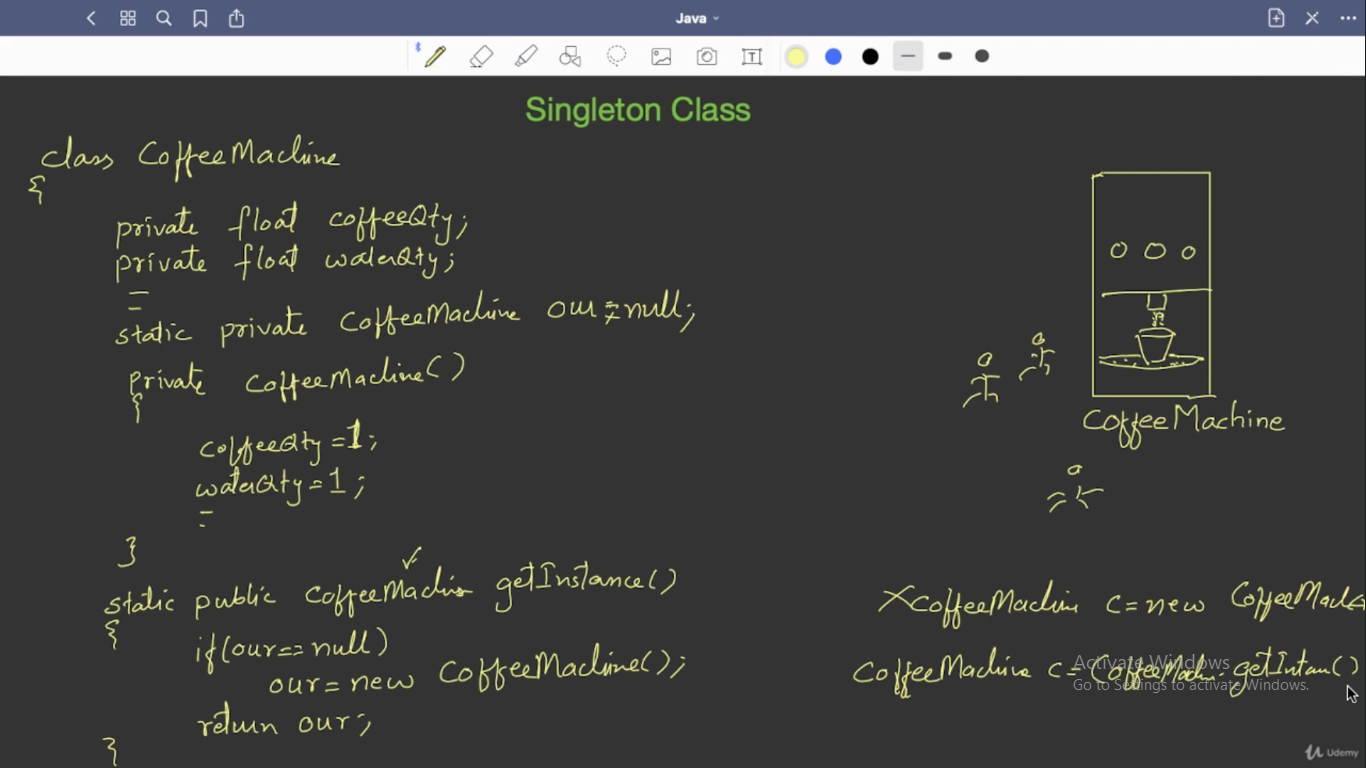 Java
Singleton Class
class CoffeeMachine
{
private float coffeeQty;
private float waterQty;
static private CoffeeMachine our=null;
private CoffeeMachine()
{
coffeeQty=1;
waterQty=1;
}
static public CoffeeMachin getInstance()
{
if(our==null)
our=new CoffeeMachine();
return our;
}
CoffeeMachine
XCoffeeMachin c=new CoffeeMach
CoffeeMachine c=CoffeeMachin.getIntan()
Activate Windows
Go to Settings to activate Windows.
Udemy